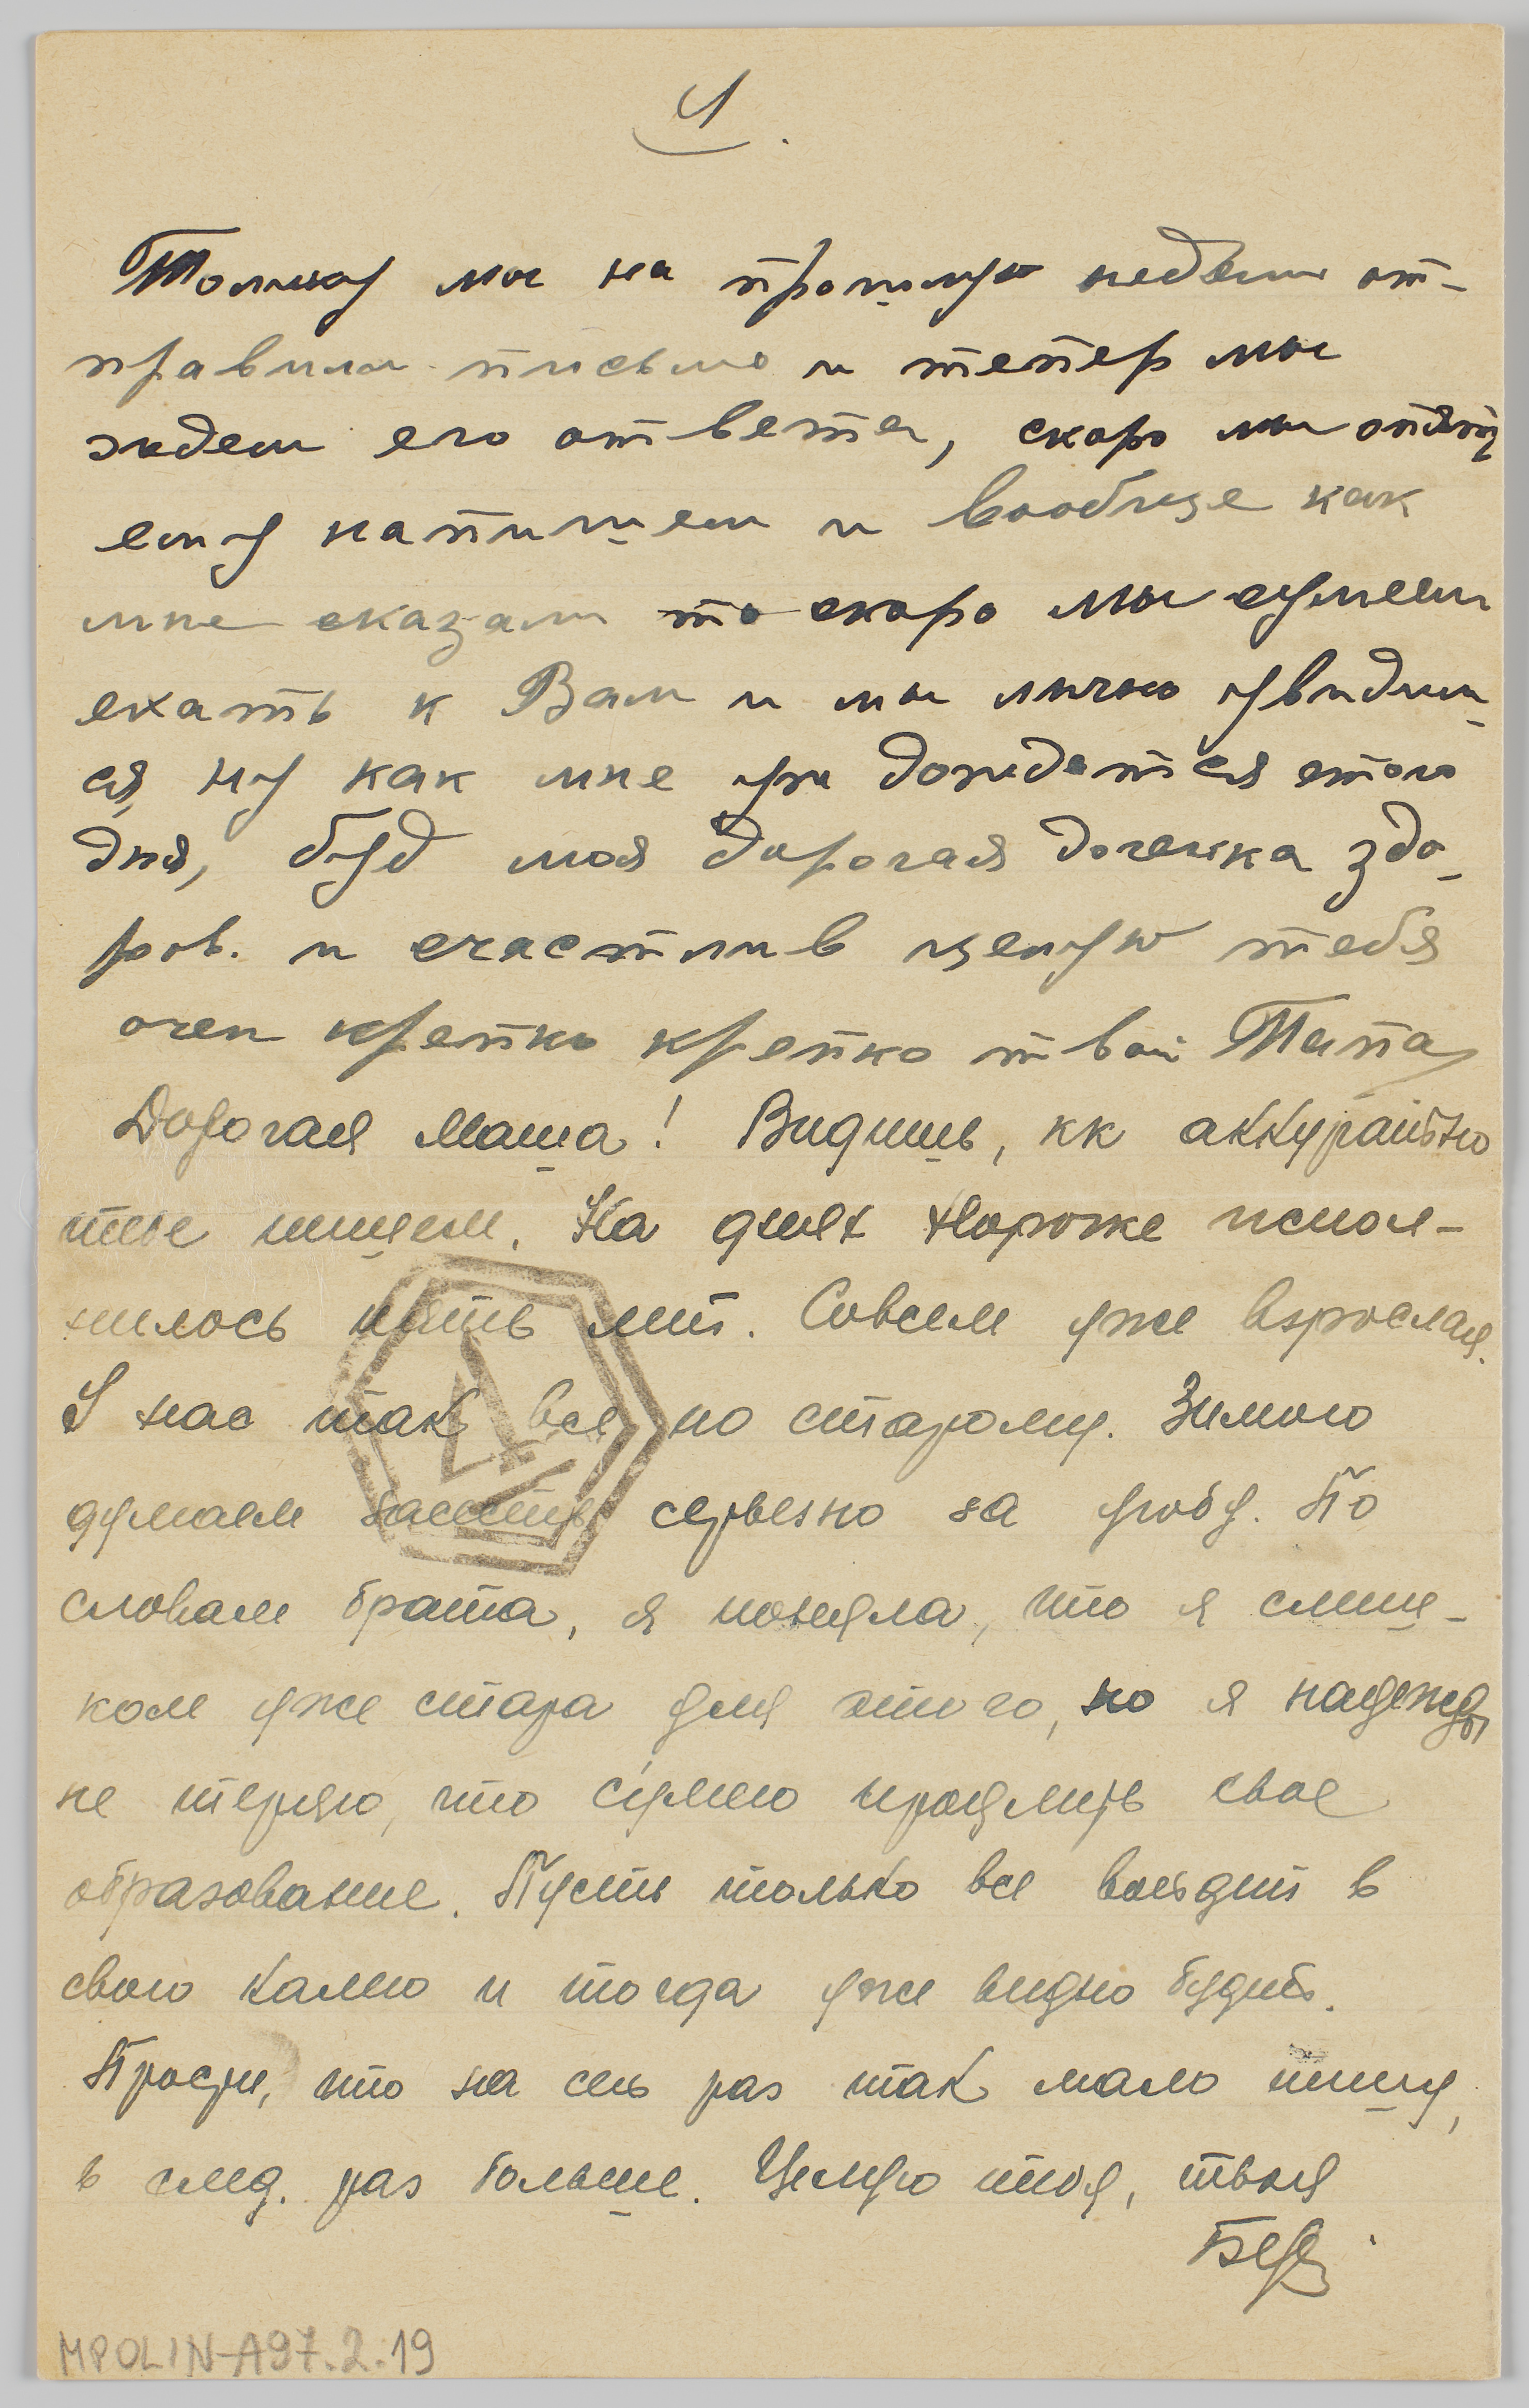 4.
мы на прошлую недели от-
правили письмо и тепер мы
ждем его ответа, скоро мы опять
ему напишем и вообще как
мне сказали то скоро мы сумеем
ехать к Вам и мы лично увидим-
ся, ну как мне уж дождаться етого
дня, буд моя дорогая доченка здо-
ров. и счастлив целую тебя
очен крепко крепко твой Папа
Дорогая Маша! Видишь, кк аккуратно
тебе пишем. На днях испол-
нилось пять лет. Совсем уже взрослая.
У нас так все по старому. Зимою
думаем засесть серьезно за учобу. По
словам брата, я поняла, что я слиш-
ком уже стара для этого, но я надежды
не теряю, что сумею продлить свое
образование. Пусть только все воейдет в
свою калею и тогда уже видно будит.
Прости, что на сей раз так мало пишу,
в след. раз больше. Целую тебя, твоя
MPOLIN-A97.2.19